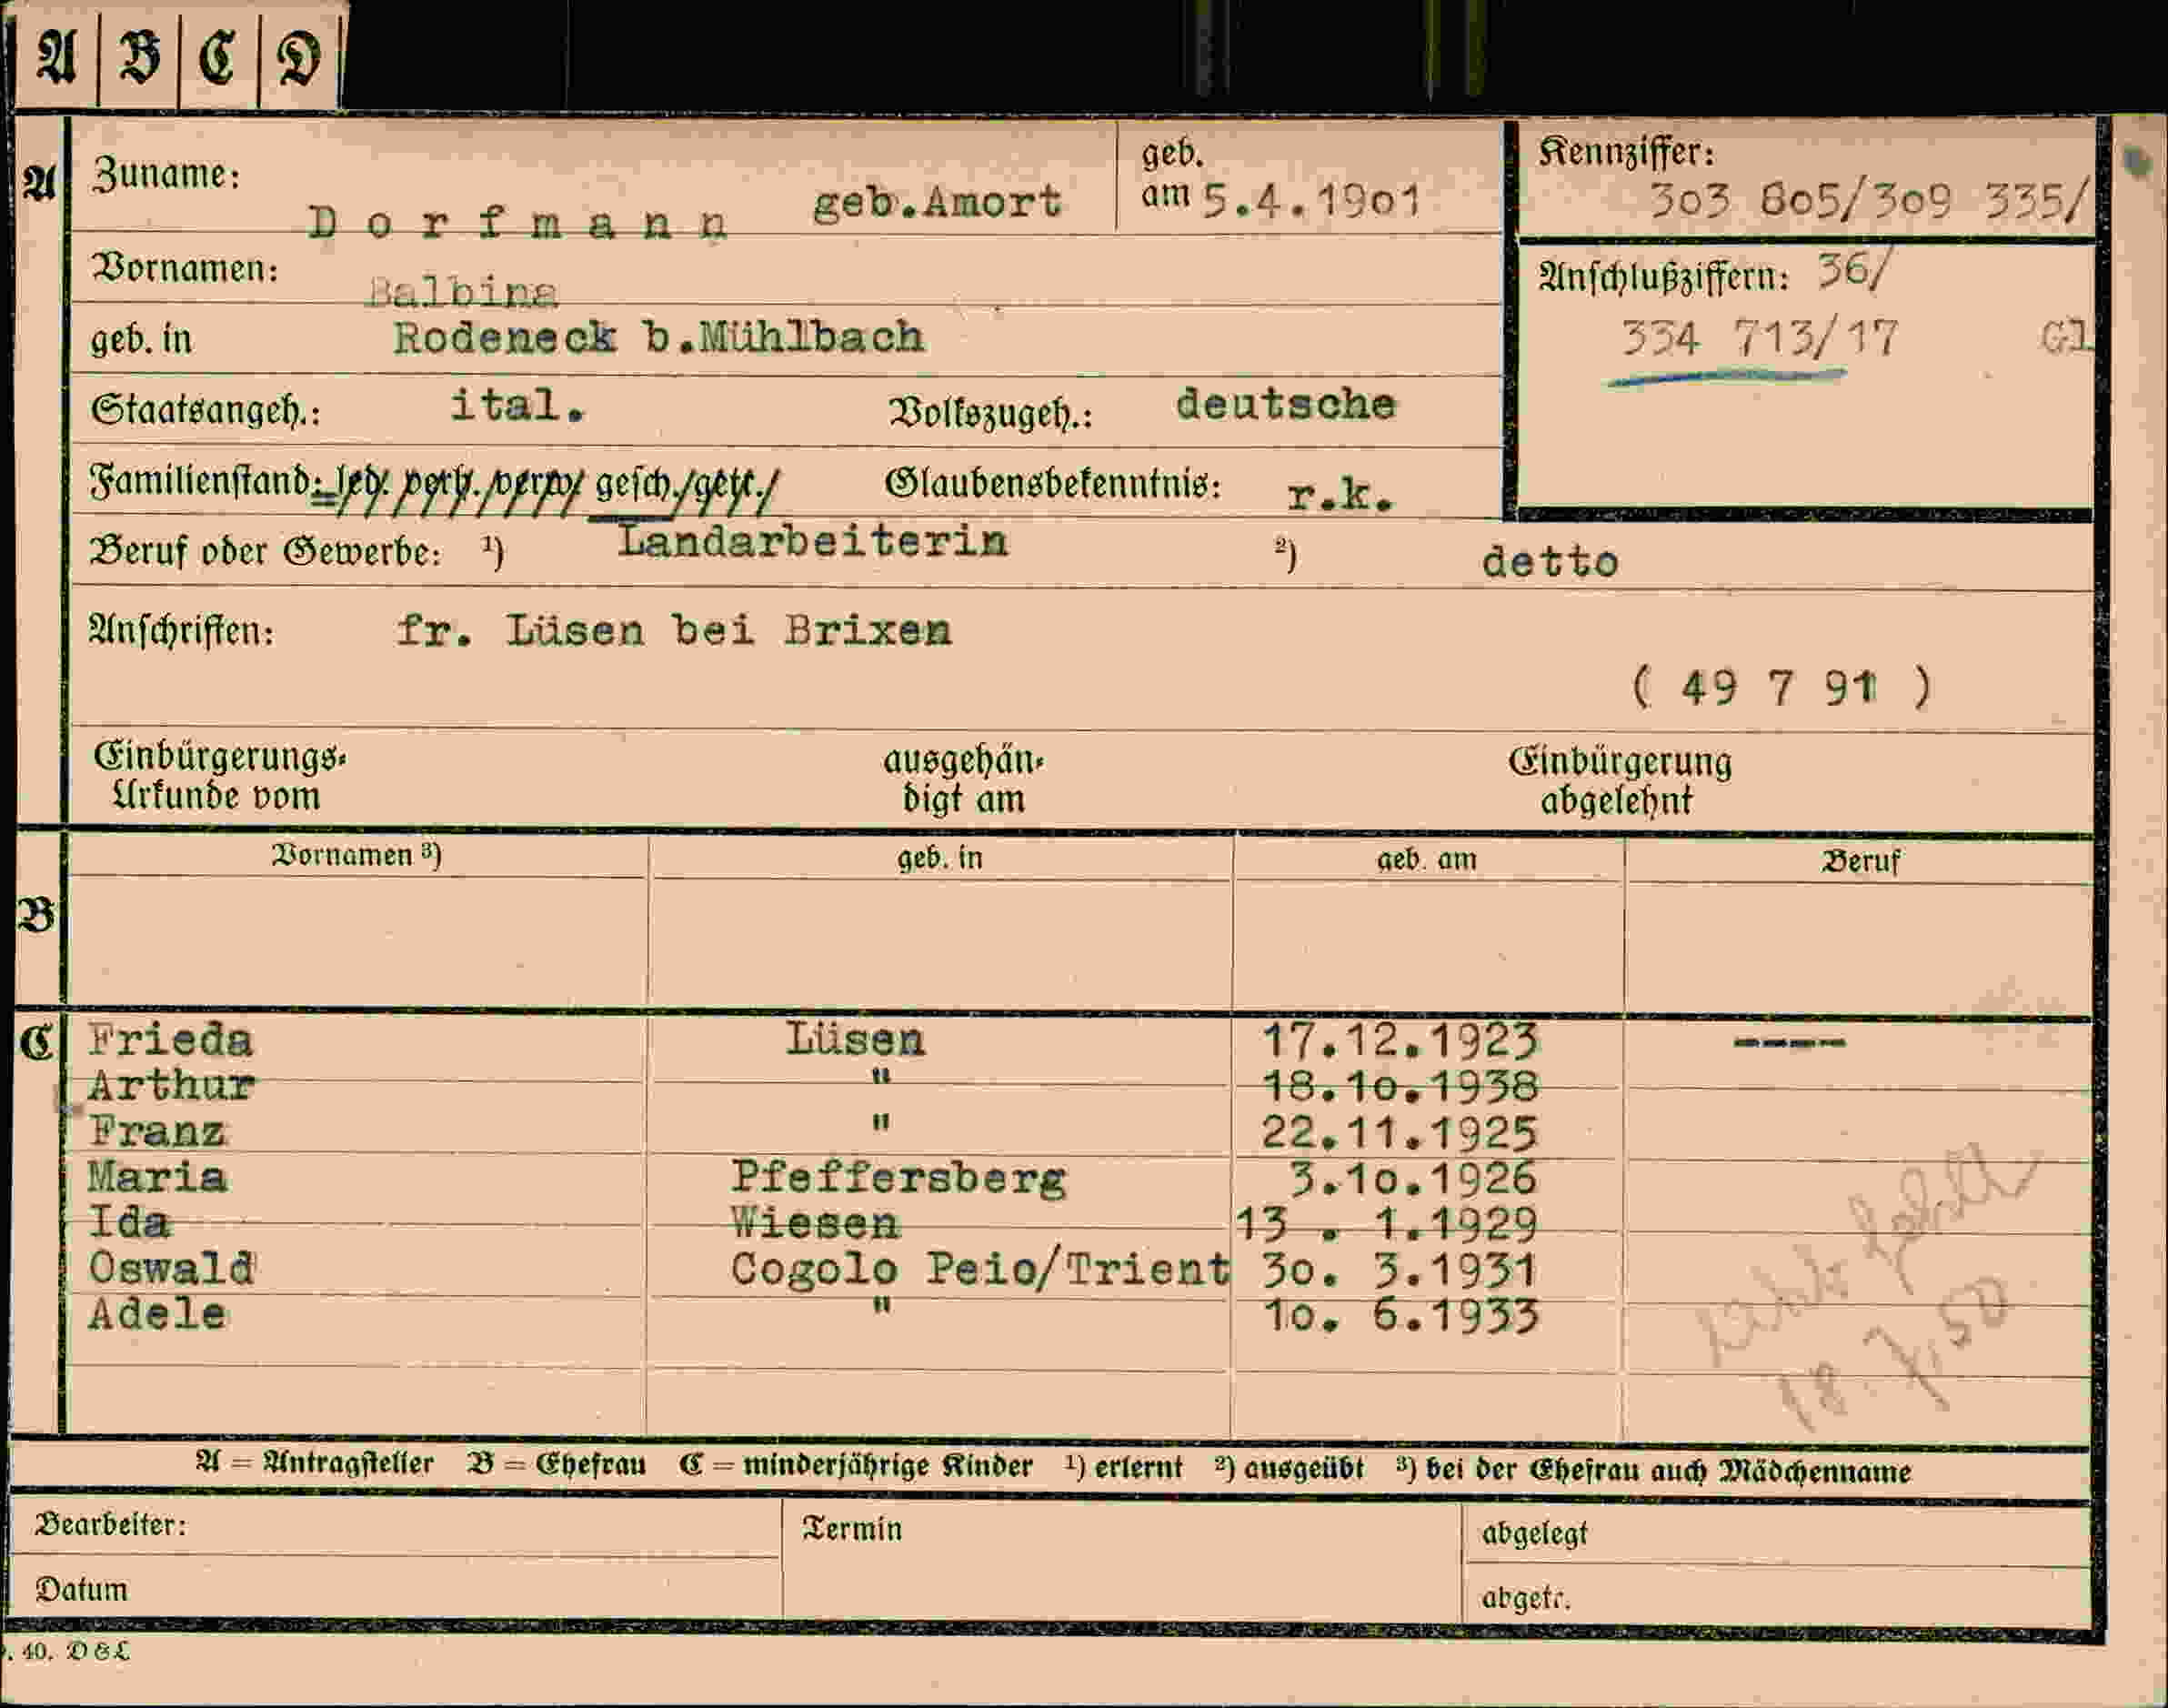 A B C D
A Zuname: Dorfmann geb.Amort geb. am 5.4.1901
Kennziffer: 303 805/309 335/
Vornamen: Balbina
Anschlußziffern: 36/
334 713/17 Gl
geb. in Rodeneck b.Mühlbach
Staatsangeh.: ital. Volkszugeh.: deutsche
Familienstand: led. verh. verw. gesch./getr./ Glaubensbekenntnis: r.k.
Beruf oder Gewerbe: ¹) Landarbeiterin ²) detto
Anschriften: fr. Lüsen bei Brixen
( 49 7 91 )
Einbürgerungs- ausgehän- Einbürgerung
Urkunde vom digt am abgelehnt
Vornamen ³) geb. in geb. am Beruf
B
C Frieda Lüsen 17.12.1923 ----
Arthur " 18.10.1938
Franz " 22.11.1925
Maria Pfeffersberg 3.10.1926
Ida Wiesen 13 . 1.1929
Oswald Cogolo Peio/Trient 30. 3.1931
Adele " 10. 6.1933
18.7.50
A = Antragsteller B = Ehefrau C = minderjährige Kinder ¹) erlernt ²) ausgeübt ³) bei der Ehefrau auch Mädchenname
Bearbeiter: Termin abgelegt
Datum abgetr.
. 40. D & L